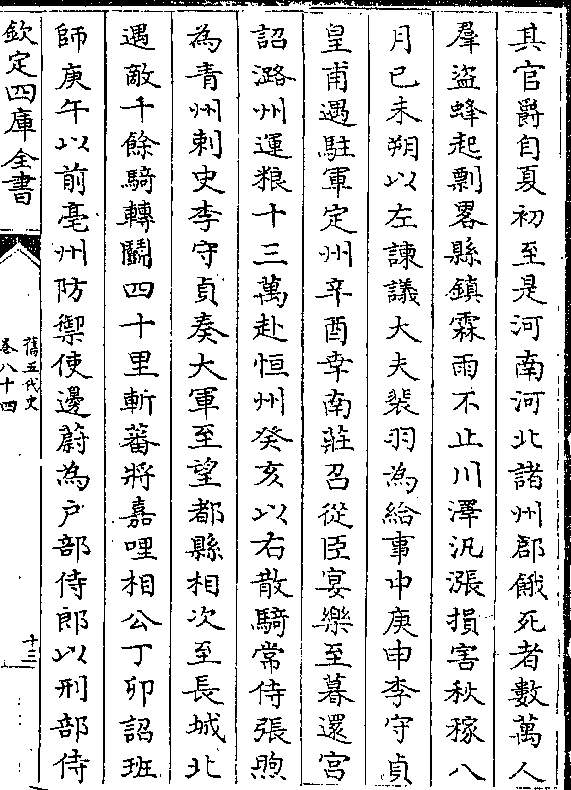 其官爵自夏初至是河南河北諸州郡餓死者數萬人
羣盗蜂起剽畧縣鎮霖雨不止川澤汎漲損害秋稼八
月已未朔以左諫議大夫裴羽為給事中庚申李守貞
皇甫遇駐軍定州辛酉幸南莊召從臣宴樂至暮還宮
詔潞州運粮十三萬赴恒州癸亥以右散騎常侍張煦
為青州刺史李守貞奏大軍至望都縣相次至長城北
遇敵千餘騎轉鬭四十里斬蕃將嘉哩相公丁卯詔班
師庚午以前亳州防禦使邊蔚為戶部侍郎以刑部侍
欽定四庫全書
舊五代史
卷八十四
十三